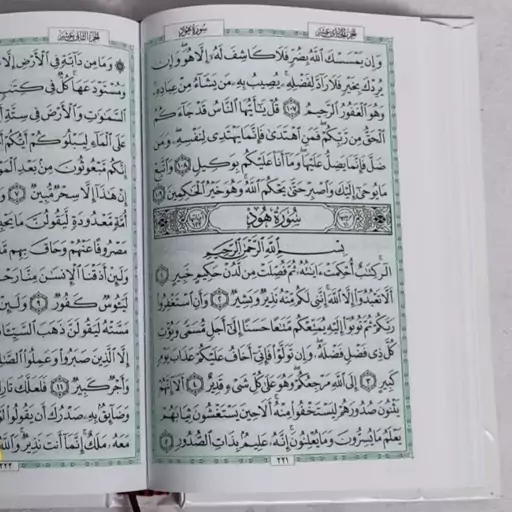 سورة هود
وَإِن يَمْسَسْكَ ٱللَّهُ بِضُرٍّ فَلَا كَاشِفَ لَهُۥٓ إِلَّا هُوَ وَإِن
يُرِدْكَ بِخَيْرٍ فَلَا رَآدَّ لِفَضْلِهِۦ يُصِيبُ بِهِۦ مَن يَشَآءُ مِنْ عِبَادِهِۦ
وَهُوَ ٱلْغَفُورُ ٱلرَّحِيمُ ١٠٧ قُلْ يَٰٓأَيُّهَا ٱلنَّاسُ قَدْ جَآءَكُمُ
ٱلْحَقُّ مِن رَّبِّكُمْ فَمَنِ ٱهْتَدَىٰ فَإِنَّمَا يَهْتَدِى لِنَفْسِهِۦ وَمَن
ضَلَّ فَإِنَّمَا يَضِلُّ عَلَيْهَا وَمَآ أَنَا۠ عَلَيْكُم بِوَكِيلٍ ١٠٨ وَٱتَّبِعْ
مَا يُوحَىٰٓ إِلَيْكَ وَٱصْبِرْ حَتَّىٰ يَحْكُمَ ٱللَّهُ وَهُوَ خَيْرُ ٱلْحَٰكِمِينَ ١٠٩
سُورَةُ هُودٍ
بِسْمِ ٱللَّهِ ٱلرَّحْمَٰنِ ٱلرَّحِيمِ
الٓر كِتَٰبٌ أُحْكِمَتْ ءَايَٰتُهُۥ ثُمَّ فُصِّلَتْ مِن لَّدُنْ حَكِيمٍ خَبِيرٍ ١
أَلَّا تَعْبُدُوٓا۟ إِلَّا ٱللَّهَ إِنَّنِى لَكُم مِّنْهُ نَذِيرٌ وَبَشِيرٌ ٢ وَأَنِ ٱسْتَغْفِرُوا۟
رَبَّكُمْ ثُمَّ تُوبُوٓا۟ إِلَيْهِ يُمَتِّعْكُم مَّتَٰعًا حَسَنًا إِلَىٰٓ أَجَلٍ مُّسَمًّى وَيُؤْتِ
كُلَّ ذِى فَضْلٍ فَضْلَهُۥ وَإِن تَوَلَّوْا۟ فَإِنِّىٓ أَخَافُ عَلَيْكُمْ عَذَابَ يَوْمٍ
كَبِيرٍ ٣ إِلَى ٱللَّهِ مَرْجِعُكُمْ وَهُوَ عَلَىٰ كُلِّ شَىْءٍ قَدِيرٌ ٤ أَلَآ إِنَّهُمْ
يَثْنُونَ صُدُورَهُمْ لِيَسْتَخْفُوا۟ مِنْهُ أَلَا حِينَ يَسْتَغْشُونَ ثِيَابَهُمْ
يَعْلَمُ مَا يُسِرُّونَ وَمَا يُعْلِنُونَ إِنَّهُۥ عَلِيمٌۢ بِذَاتِ ٱلصُّدُورِ ٥
٢٢١
وَمَا مِن دَآبَّةٍ فِى ٱلْأَرْضِ إِلَّا
وَمُسْتَوْدَعَهَا كُلٌّ فِى كِتَٰبٍ
ٱلسَّمَٰوَٰتِ وَٱلْأَرْضَ فِى سِتَّةِ
عَلَى ٱلْمَآءِ لِيَبْلُوَكُمْ أَيُّكُمْ
إِنَّكُم مَّبْعُوثُونَ مِنۢ بَعْدِ
إِنْ هَٰذَآ إِلَّا سِحْرٌ مُّبِينٌ ٧
أُمَّةٍ مَّعْدُودَةٍ لَّيَقُولُنَّ مَا
مَصْرُوفًا عَنْهُمْ وَحَاقَ بِهِم
وَلَئِنْ أَذَقْنَا ٱلْإِنسَٰنَ مِنَّا
لَيَـُٔوسٌ كَفُورٌ ٩ وَلَئِنْ
مَسَّتْهُ لَيَقُولَنَّ ذَهَبَ
إِلَّا ٱلَّذِينَ صَبَرُوا۟ وَعَمِلُوا۟
وَأَجْرٌ كَبِيرٌ ١١ فَلَعَلَّكَ
وَضَآئِقٌۢ بِهِۦ صَدْرُكَ أَن يَقُولُوا۟
مَعَهُۥ مَلَكٌ إِنَّمَآ أَنتَ نَذِيرٌ
٢٢٢